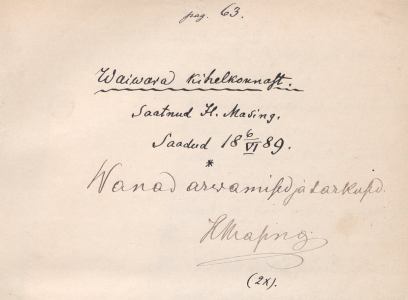 pag. 63.
Waiwara kihelkonnast.
Saatnud H. Masing.
Saadud 18 6/VI 89.
*
Wanad arwamised ja tarkused.
HMasing
(2x).